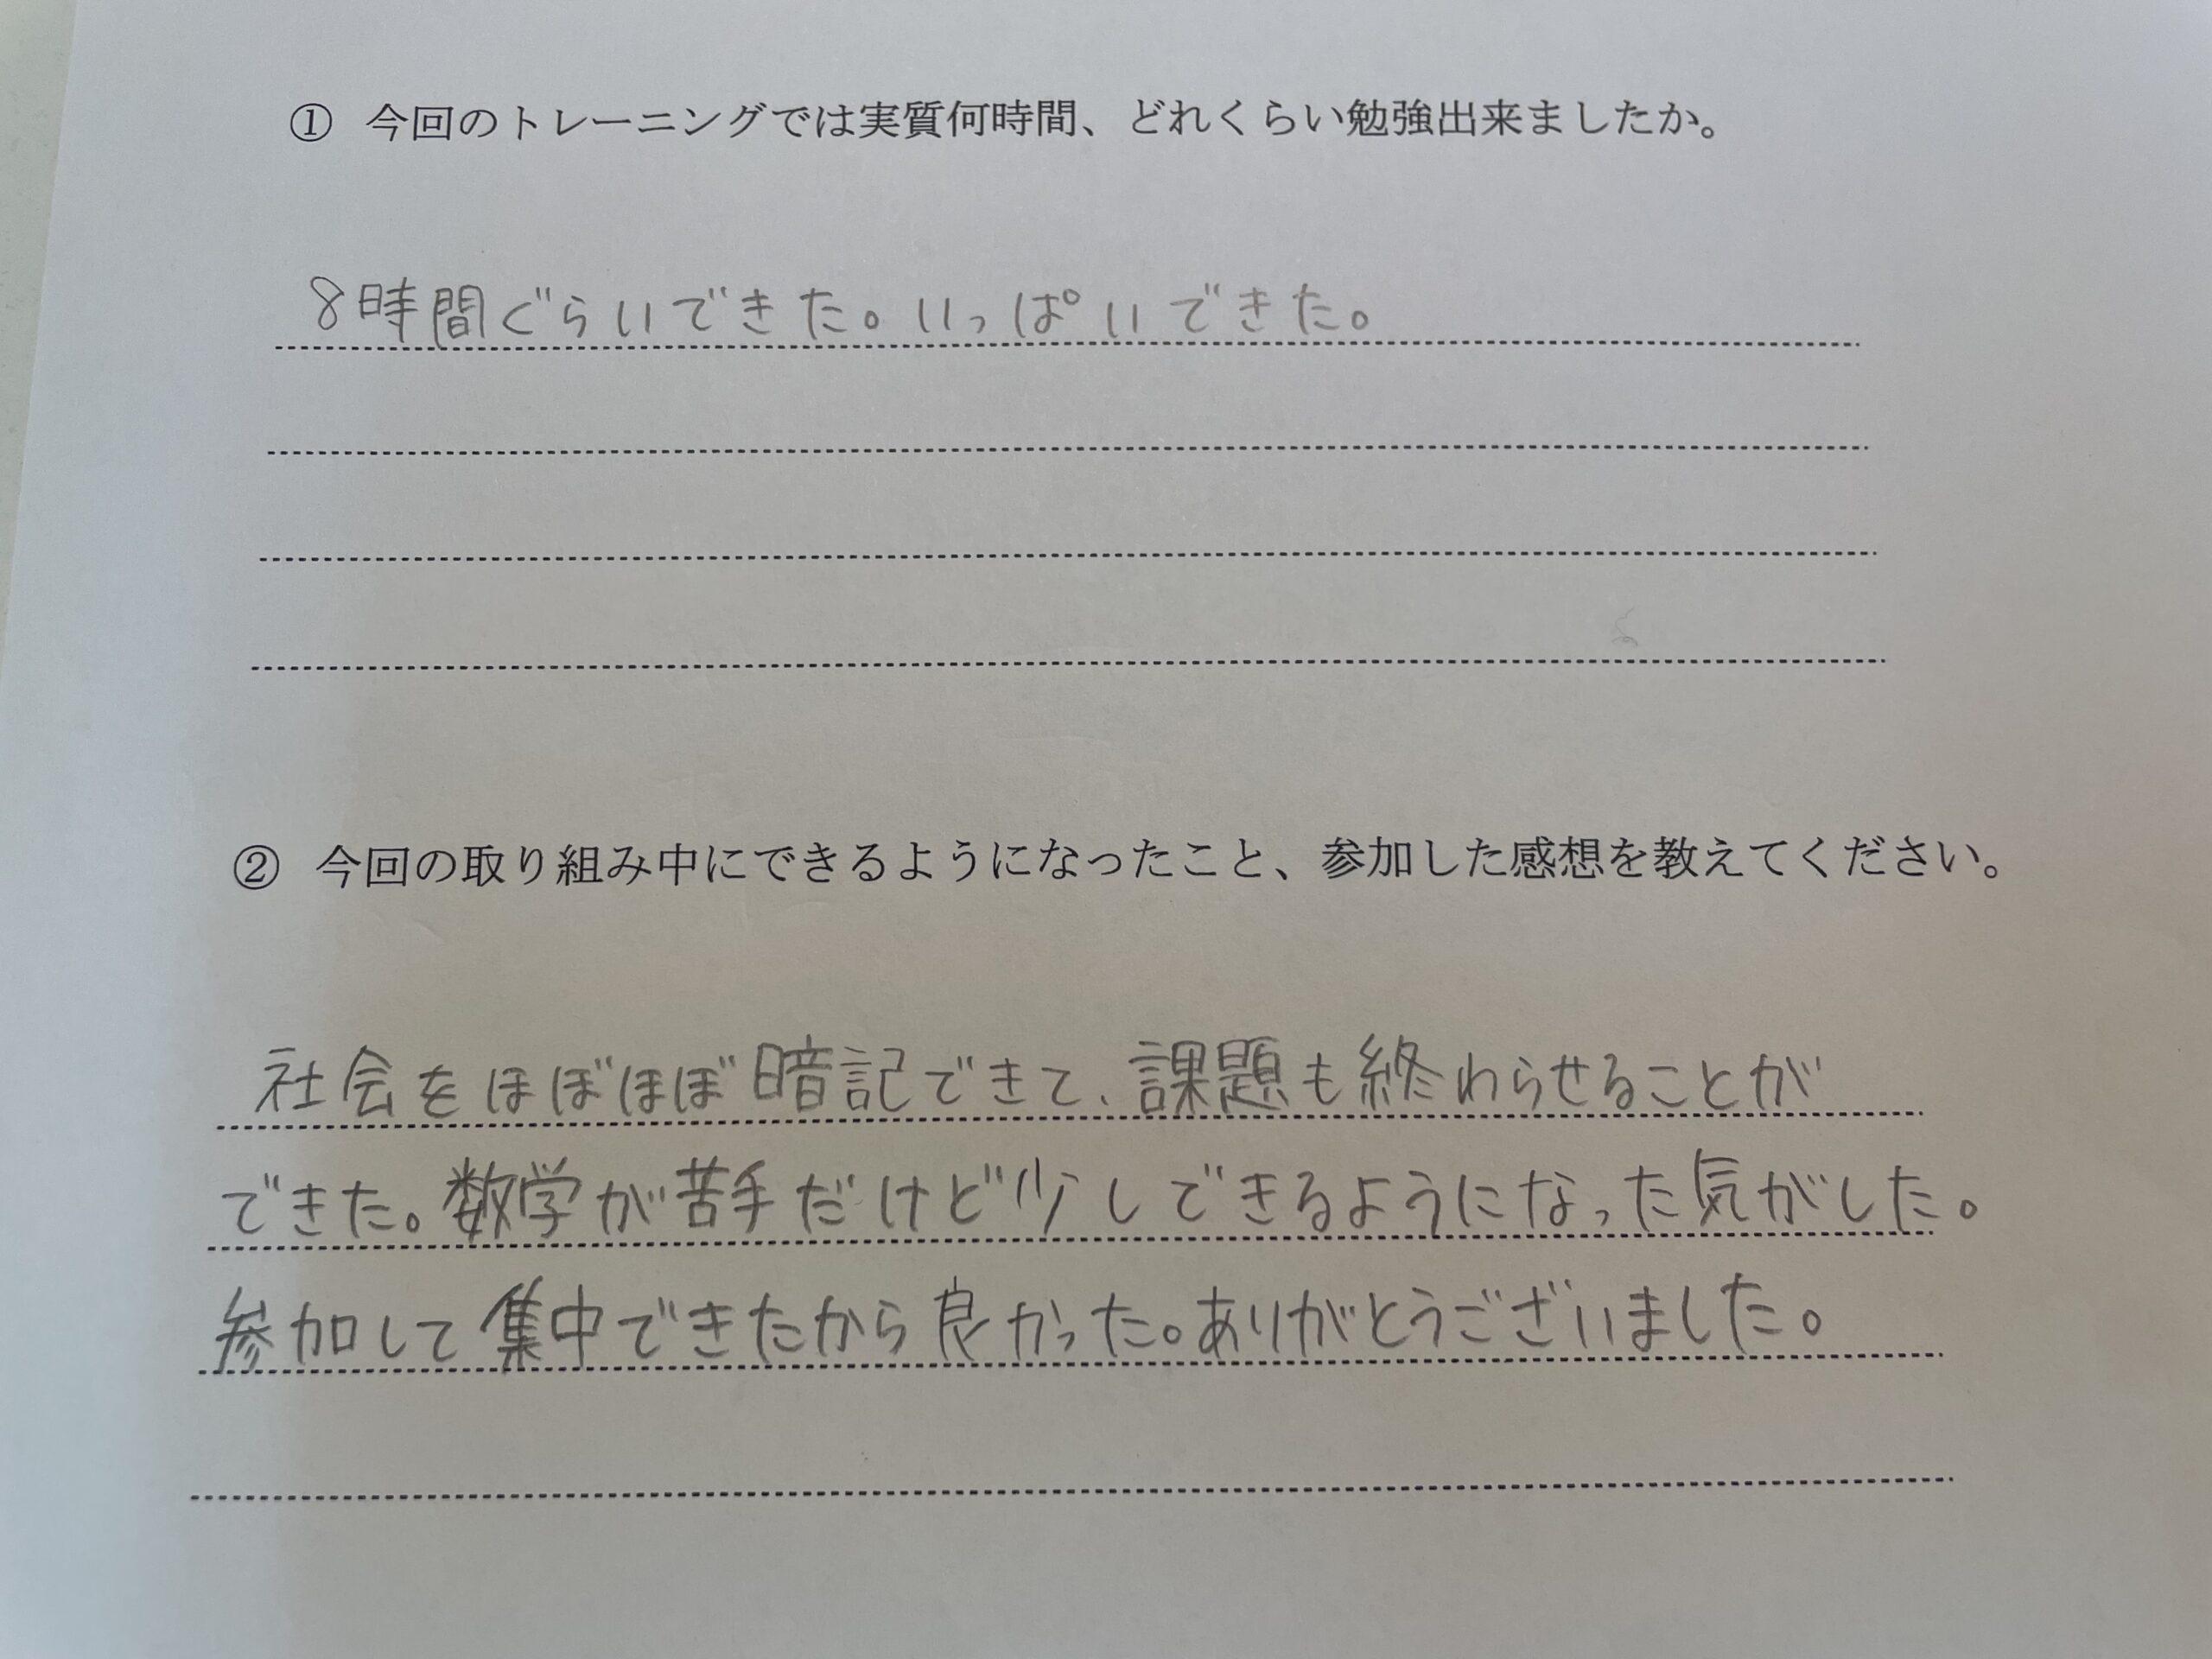 ① 今回のトレーニングでは実質何時間、どれくらい勉強出来ましたか。
8時間ぐらいできた。いっぱいできた。
② 今回の取り組み中にできるようになったこと、参加した感想を教えてください。
社会をほぼほぼ暗記できて、課題も終わらせることが
できた。数学が苦手だけど少しできるようになった気がした。
参加して集中できたから良かった。ありがとうございました。